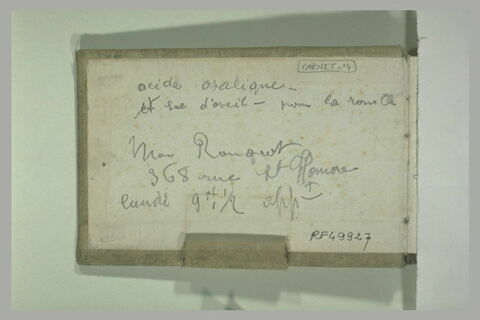 CARNET n°4
acide oxalique -
et sel d'oseil - pour la rouille
Mon Rouquet
368 rue St Honore
lundi 9h 1/2 appt
RF49927